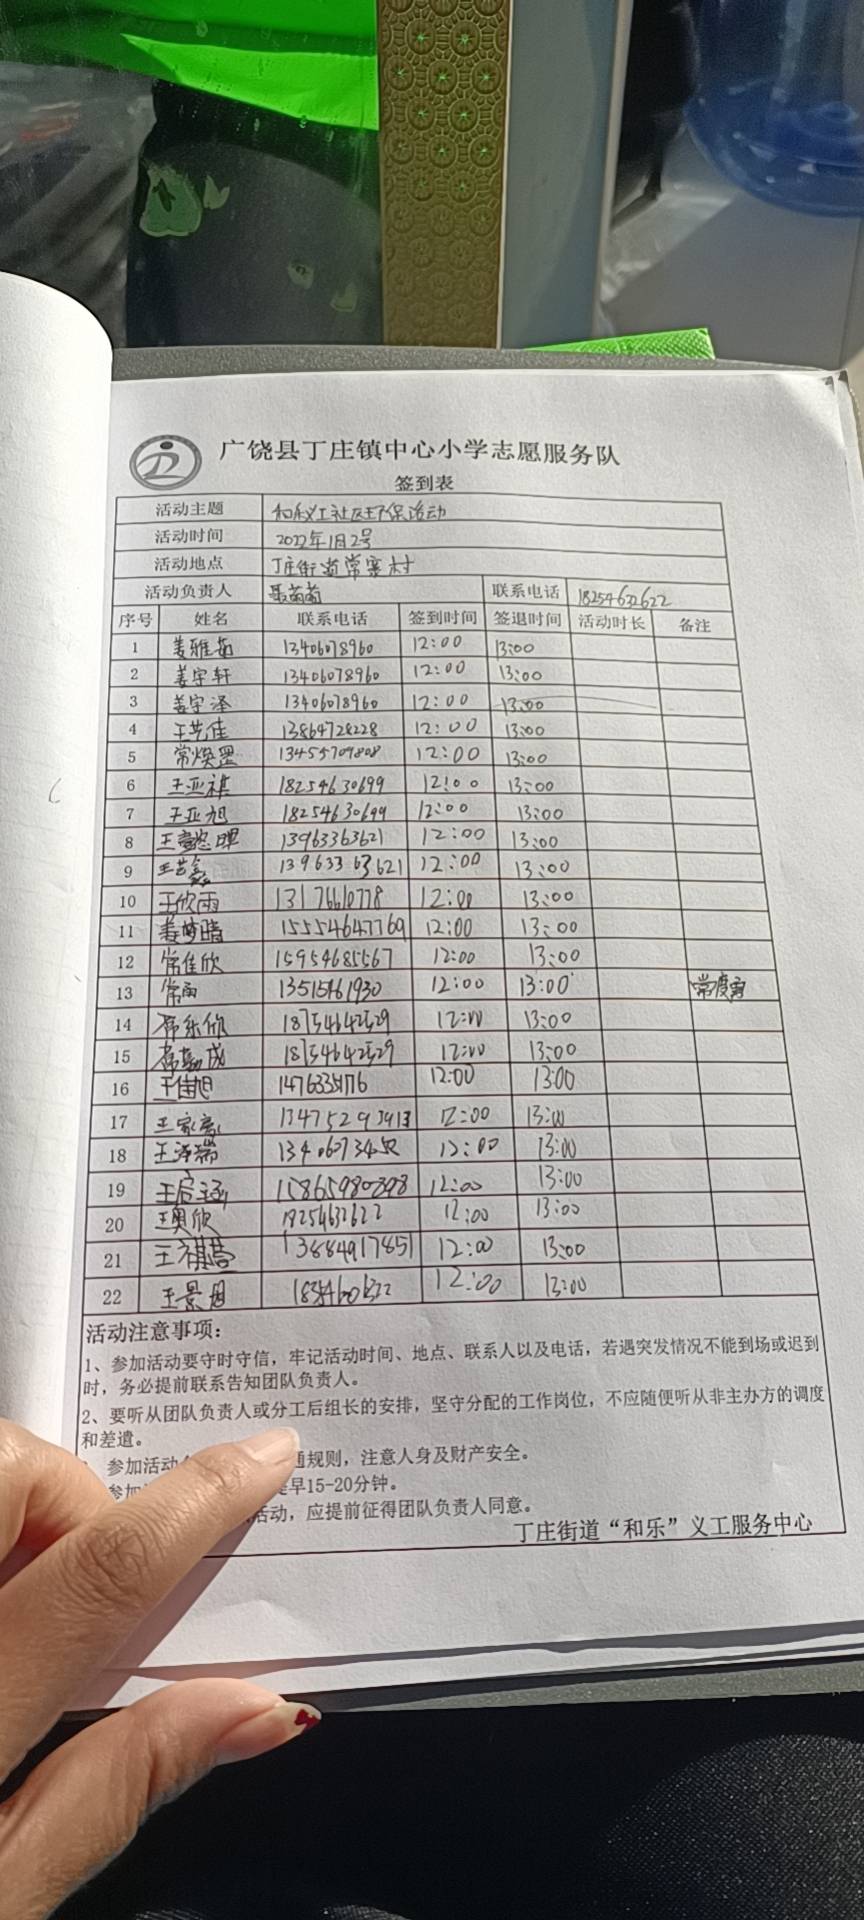 广饶县丁庄镇中心小学志愿服务队
签到表
活动主题 和义工社区环保活动
活动时间 2022年1月2号
活动地点 丁庄街道常寨村
活动负责人 联系电话 18254632622
序号 姓名 联系电话 签到时间 签退时间 活动时长 备注
1 姜雅茹 13406078960 12:00 13:00
2 姜宇轩 13406078960 12:00 13:00
3 姜宇泽 13406078960 12:00 13:00
4 王艺佳 13864728228 12:00 13:00
5 常焕墨 13455709808 12:00 13:00
6 王亚祺 18254630699 12:00 13:00
7 王亚旭 18254630699 12:00 13:00
8 13963363621 12:00 13:00
9 王艺鑫 13963363621 12:00 13:00
10 王欣雨 13176610778 12:00 13:00
11 姜梦晴 15554647769 12:00 13:00
12 常佳欣 15954685567 12:00 13:00
13 常雨 13515461930 12:00 13:00
14 常乐欣 18754642529 12:00 13:00
15 18754642529 12:00 13:00
16 王佳旭 12:00 13:00
17 王家豪 12:00 13:00
18 王泽瑞 12:00 13:00
19 王启涵 15865980898 12:00 13:00
20 王奥欣 18254632622 12:00 13:00
21 王祺萱 13884917851 12:00 13:00
22 12:00 13:00
活动注意事项:
1、参加活动要守时守信，牢记活动时间、地点、联系人以及电话，若遇突发情况不能到场或迟到
时，务必提前联系告知团队负责人。
2、要听从团队负责人或分工后组长的安排，坚守分配的工作岗位，不应随便听从非主办方的调度
和差遣。
参加活动 通规则，注意人身及财产安全。
参加 早15-20分钟。
活动，应提前征得团队负责人同意。
丁庄街道“和乐”义工服务中心